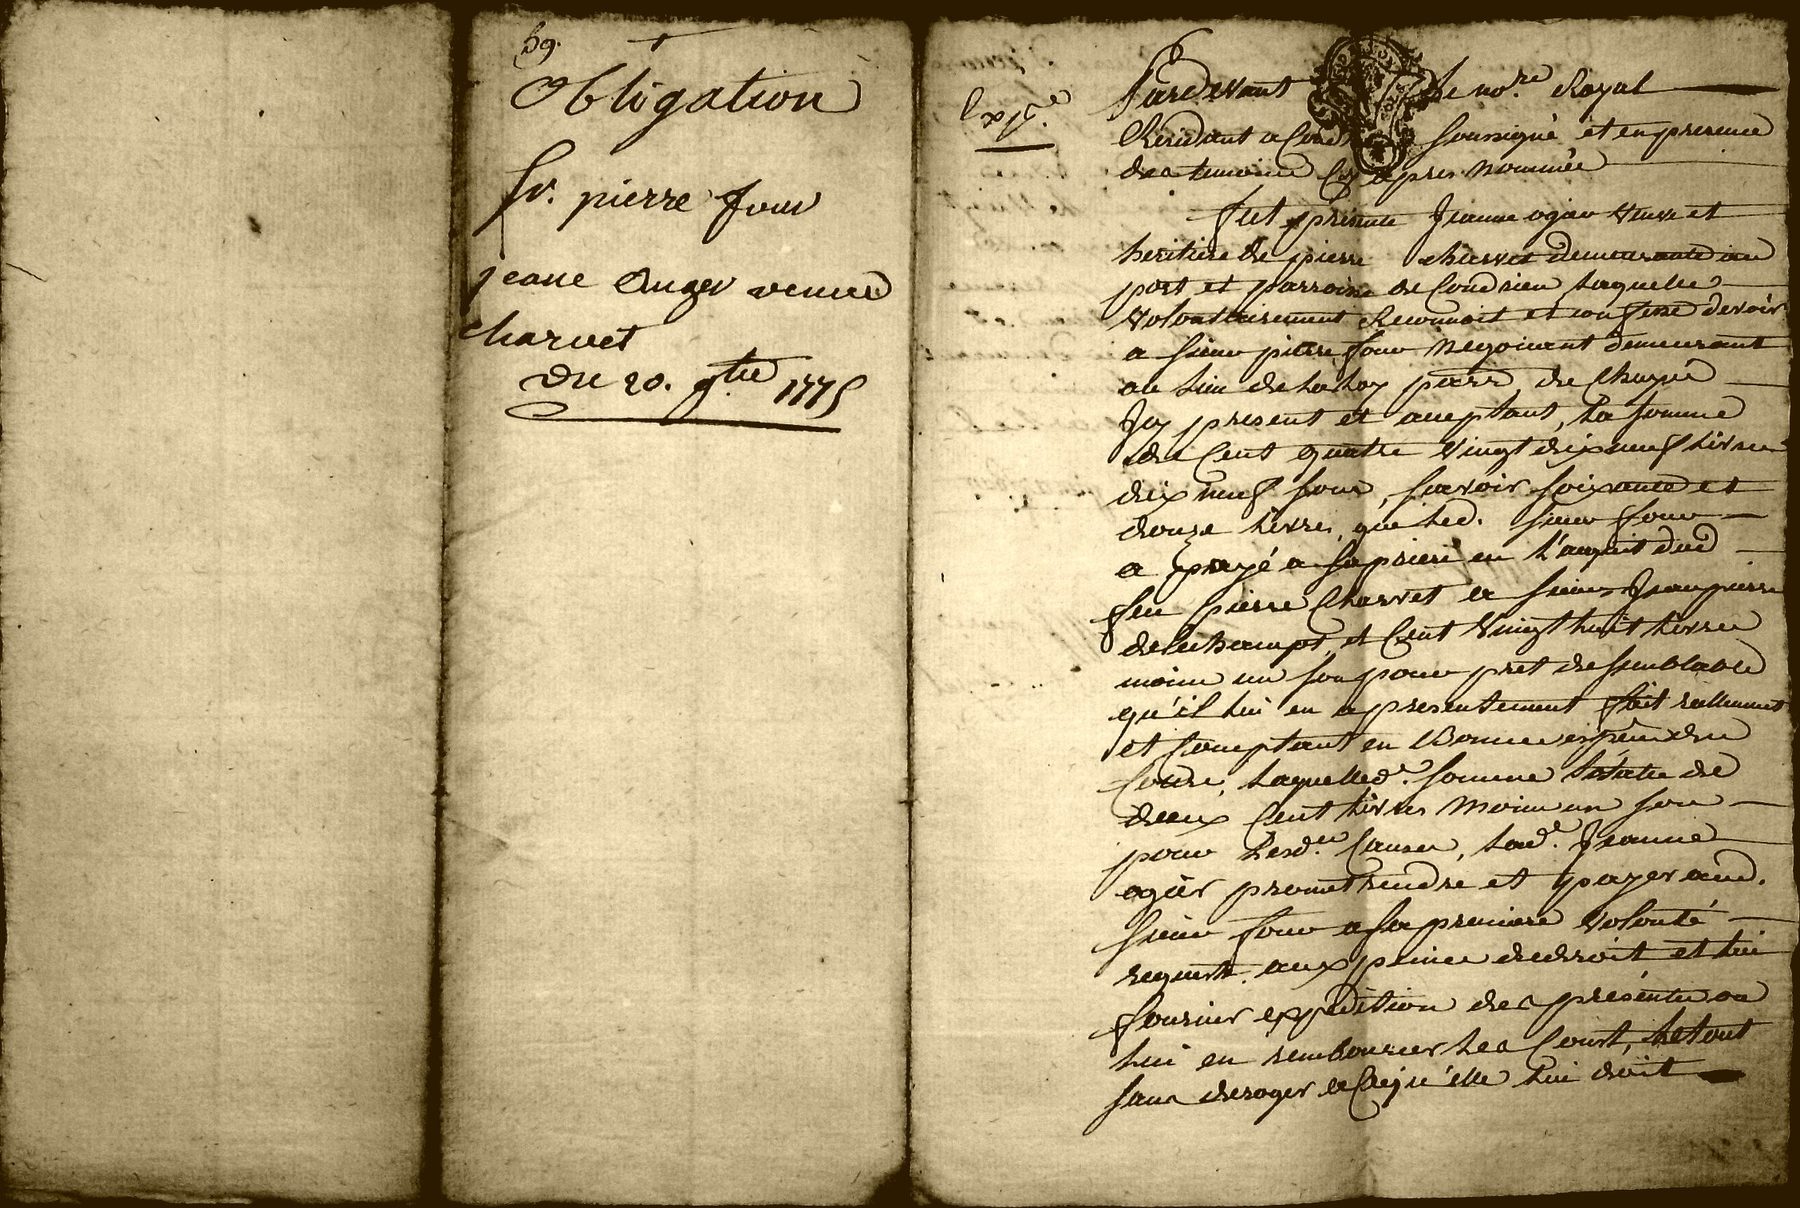 59.
obligation
Sr. pierre four
jeane Auger veuve
charvet
Du 20. 9bre 1775
Expée
Pardevant Le nore. Royal
Résidant a Cond soussigné et en presence
des temoins Cy apres nommés
fut presente Jeanne ogier veuve et
heritiere de pierre charvet demeurante au
port et parroisse de Condrieu Laquelle
volontairement Reconnoit et confesse devoir
a sieur pierre four Negociant demeurant
au lieu de parr. de Chuyé
Icy present et aceptant, La somme
de Cent quatre vingt dix neuf Livres
dix neuf sous, savoir soixante et
douze Livres, que Led. sieur four
a payé a sa priere en L'acquit dud
feu pierre Charvet a sieur Jean pierre
deschamps, et Cent vingt huit Livres
moins un sou pour pret de semblable
qu'il lui en a presentement fait reellement
et Comptant en Bonnes espèces du
Cours, Laquelled. somme totale de
deux Cent Livres moins un sou
pour Lesd. Causes, Lad. Jeanne
ogier promet rendre et payer aud.
sieur four a sa premiere volonté
requete, aux peines de droit et lui
fournir expedition des présentes ou
lui en rembourcer Les Cours, Le tout
sans deroger a Ce qu'elle lui doit